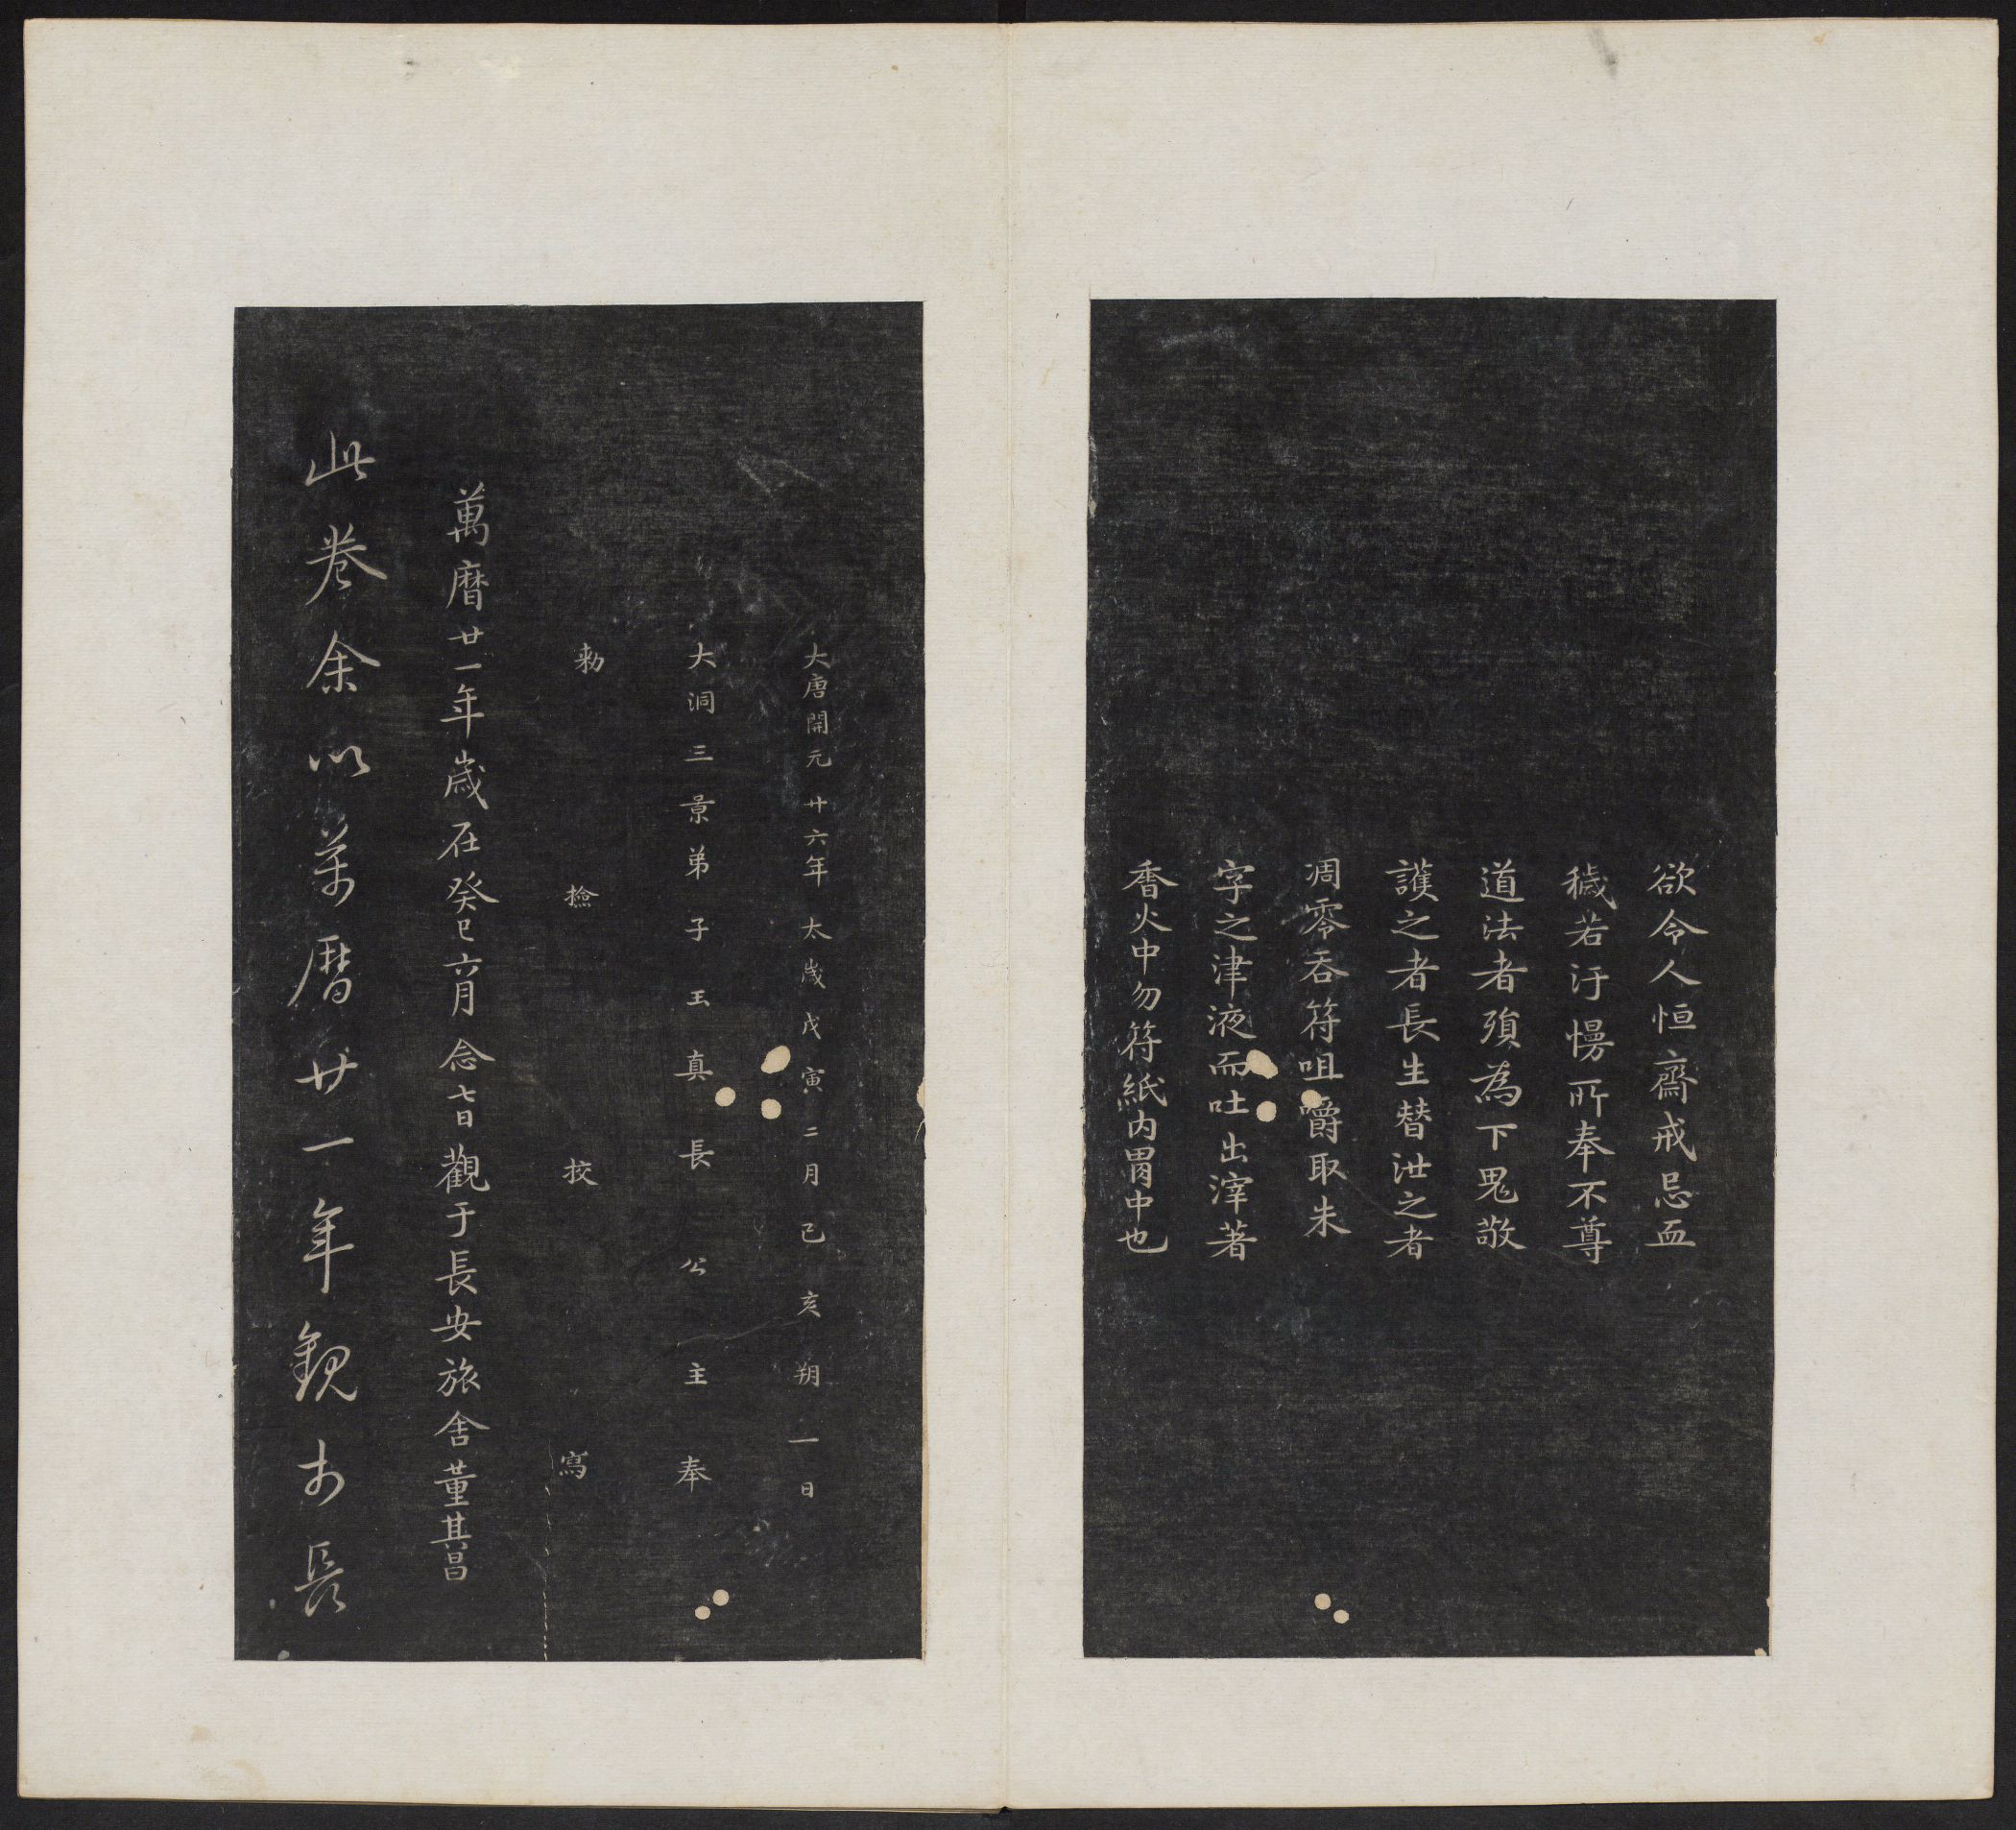 欲令人恒齋戒忌血
穢若汙慢所奉不尊
道法者須為下鬼敬
護之者長生替泄之者
凋零吞符咀嚼取朱
字之津液而吐出滓著
香火中勿符紙內胃中也
大唐開元廿六年太歲戊寅二月己亥朔一日
大洞三景弟子玉真長公主奉
勑檢校寫
萬曆廿一年歲在癸巳六月念七日觀于長安旅舍董其昌
此卷余以萬曆廿一年觀於長